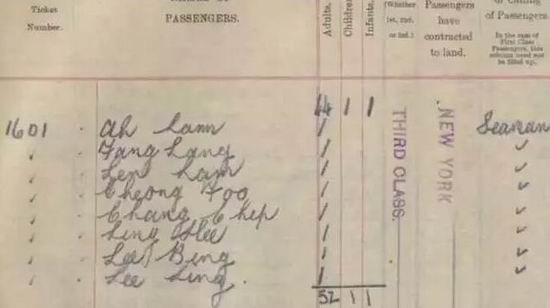 Ticket Number.
PASSENGERS.
Adults.
Children
Infants.
(Whether 1st, 2nd, or 3rd.)
Passengers have contracted to land.
of Passengers
In the case of First Class Passengers, this column need not be filled up.
44 1 1
1601 Ah Lam / THIRD CLASS. NEW YORK Seaman
✓ Fang Lang / ✓
✓ Len Lam / ✓
✓ Cheong Foo / ✓
✓ Chang Chip / ✓
✓ Ling Hee / ✓
✓ Lee Bing / ✓
✓ Lee Ling. / ✓
52 1 1